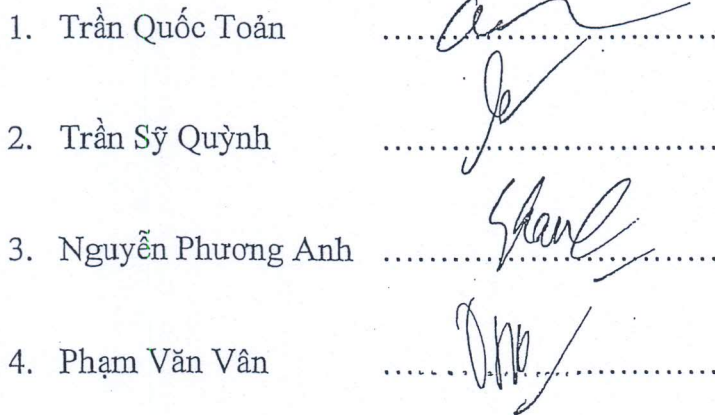 1. Trần Quốc Toản ..............................
2. Trần Sỹ Quỳnh ..............................
3. Nguyễn Phương Anh ..............................
4. Phạm Văn Vân ..............................